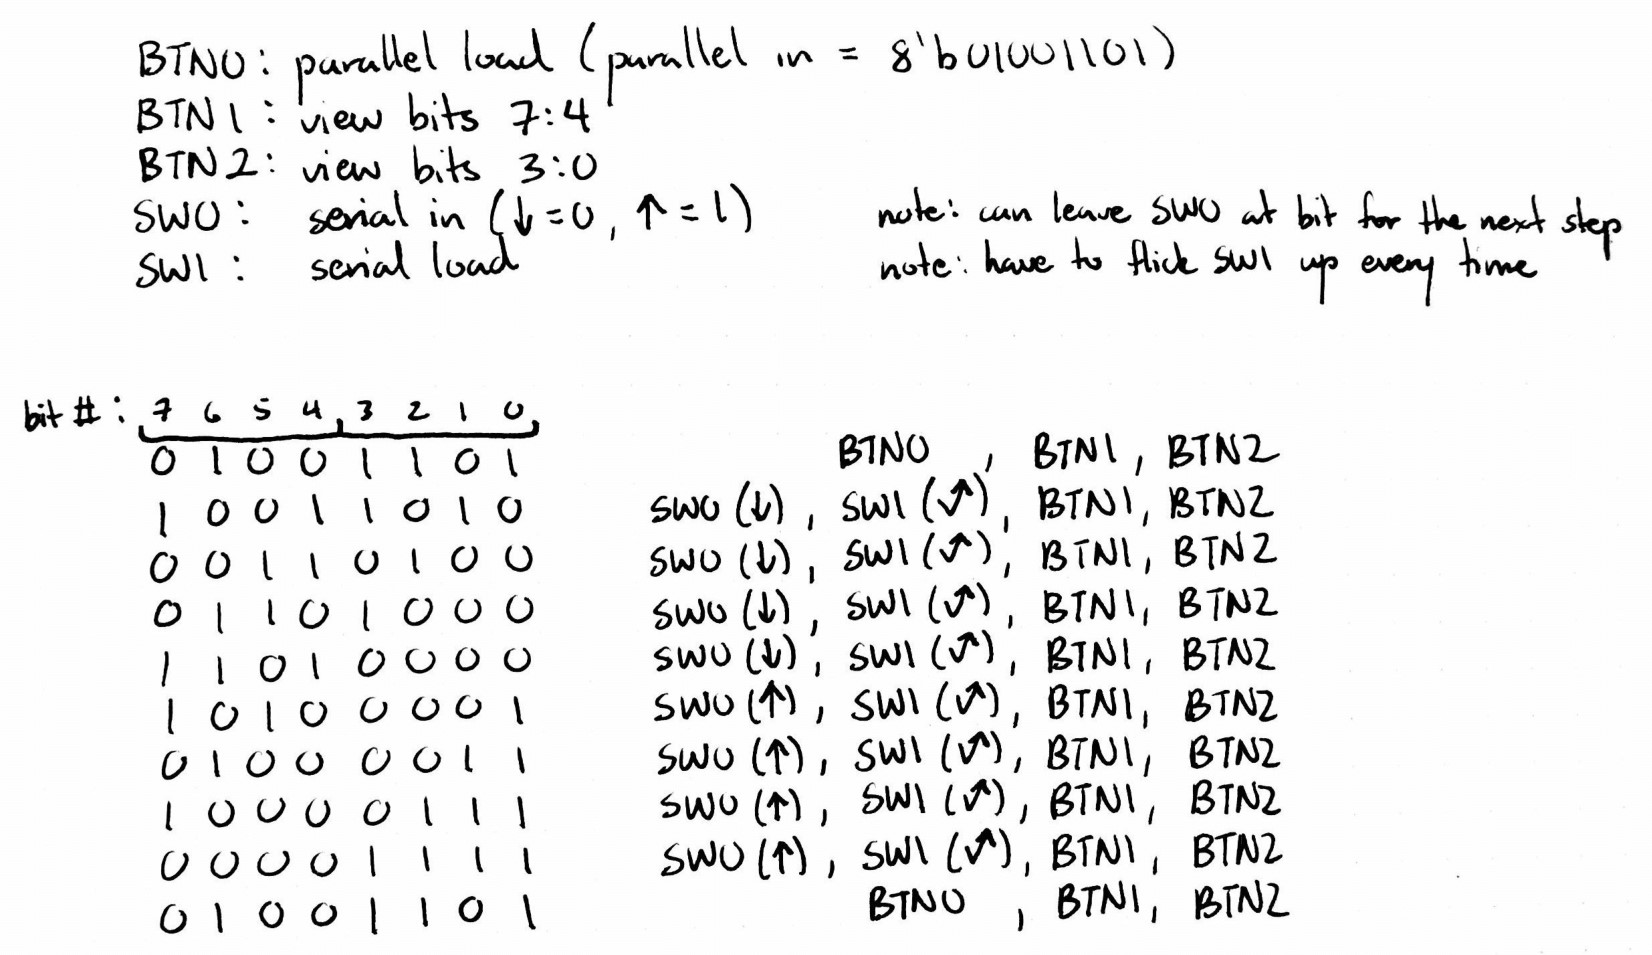 BTN0: parallel load (parallel in = 8'b01001101)
BTN1: view bits 7:4
BTN2: view bits 3:0
SW0: serial in (↓=0, ↑=1) note: can leave SW0 at bit for the next step
SW1: serial load note: have to flick SW1 up every time
bit #: 7 6 5 4 3 2 1 0
0 1 0 0 1 1 0 1 BTN0, BTN1, BTN2
1 0 0 1 1 0 1 0 SW0 (↓), SW1 (↗), BTN1, BTN2
0 0 1 1 0 1 0 0 SW0 (↓), SW1 (↗), BTN1, BTN2
0 1 1 0 1 0 0 0 SW0 (↓), SW1 (↗), BTN1, BTN2
1 1 0 1 0 0 0 0 SW0 (↓), SW1 (↗), BTN1, BTN2
1 0 1 0 0 0 0 1 SW0 (↑), SW1 (↗), BTN1, BTN2
0 1 0 0 0 0 1 1 SW0 (↑), SW1 (↗), BTN1, BTN2
1 0 0 0 0 1 1 1 SW0 (↑), SW1 (↗), BTN1, BTN2
0 0 0 0 1 1 1 1 SW0 (↑), SW1 (↗), BTN1, BTN2
0 1 0 0 1 1 0 1 BTN0, BTN1, BTN2